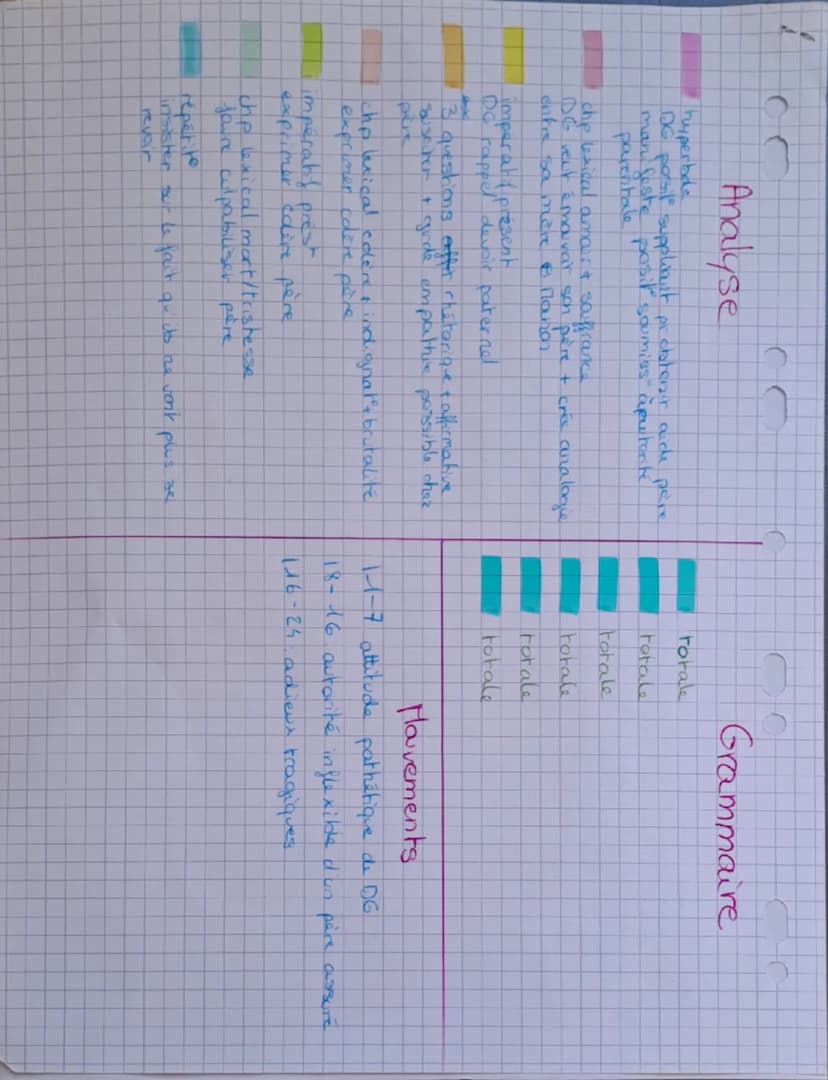 Analyse
hyperbole
DG posit° suppliant pr obtenir aide père
manifeste posit° soumiss° à autorité
parentale
chp lexical amour + souffrance
DG veut émouvoir son père + crée analogie
entre sa mère & Manon
impératif présent
DG rappel devoir paternel
3 questions rhétorique + affirmative
susciter + grde empathie possible chez
père
chp lexical colère + indignat° + brutalité
exprimer colère père
impératif prést
exprimer colère père
chp lexical mort/tristesse
faire culpabiliser père
répétit°
insister sur le fait qu'ils ne vont plus se
revoir
Grammaire
totale
totale
totale
totale
totale
totale
Mouvements
l 1-7 attitude pathétique de DG
l 8-16 autorité inflexible d'un père assuré
l 16-24 adieux tragiques